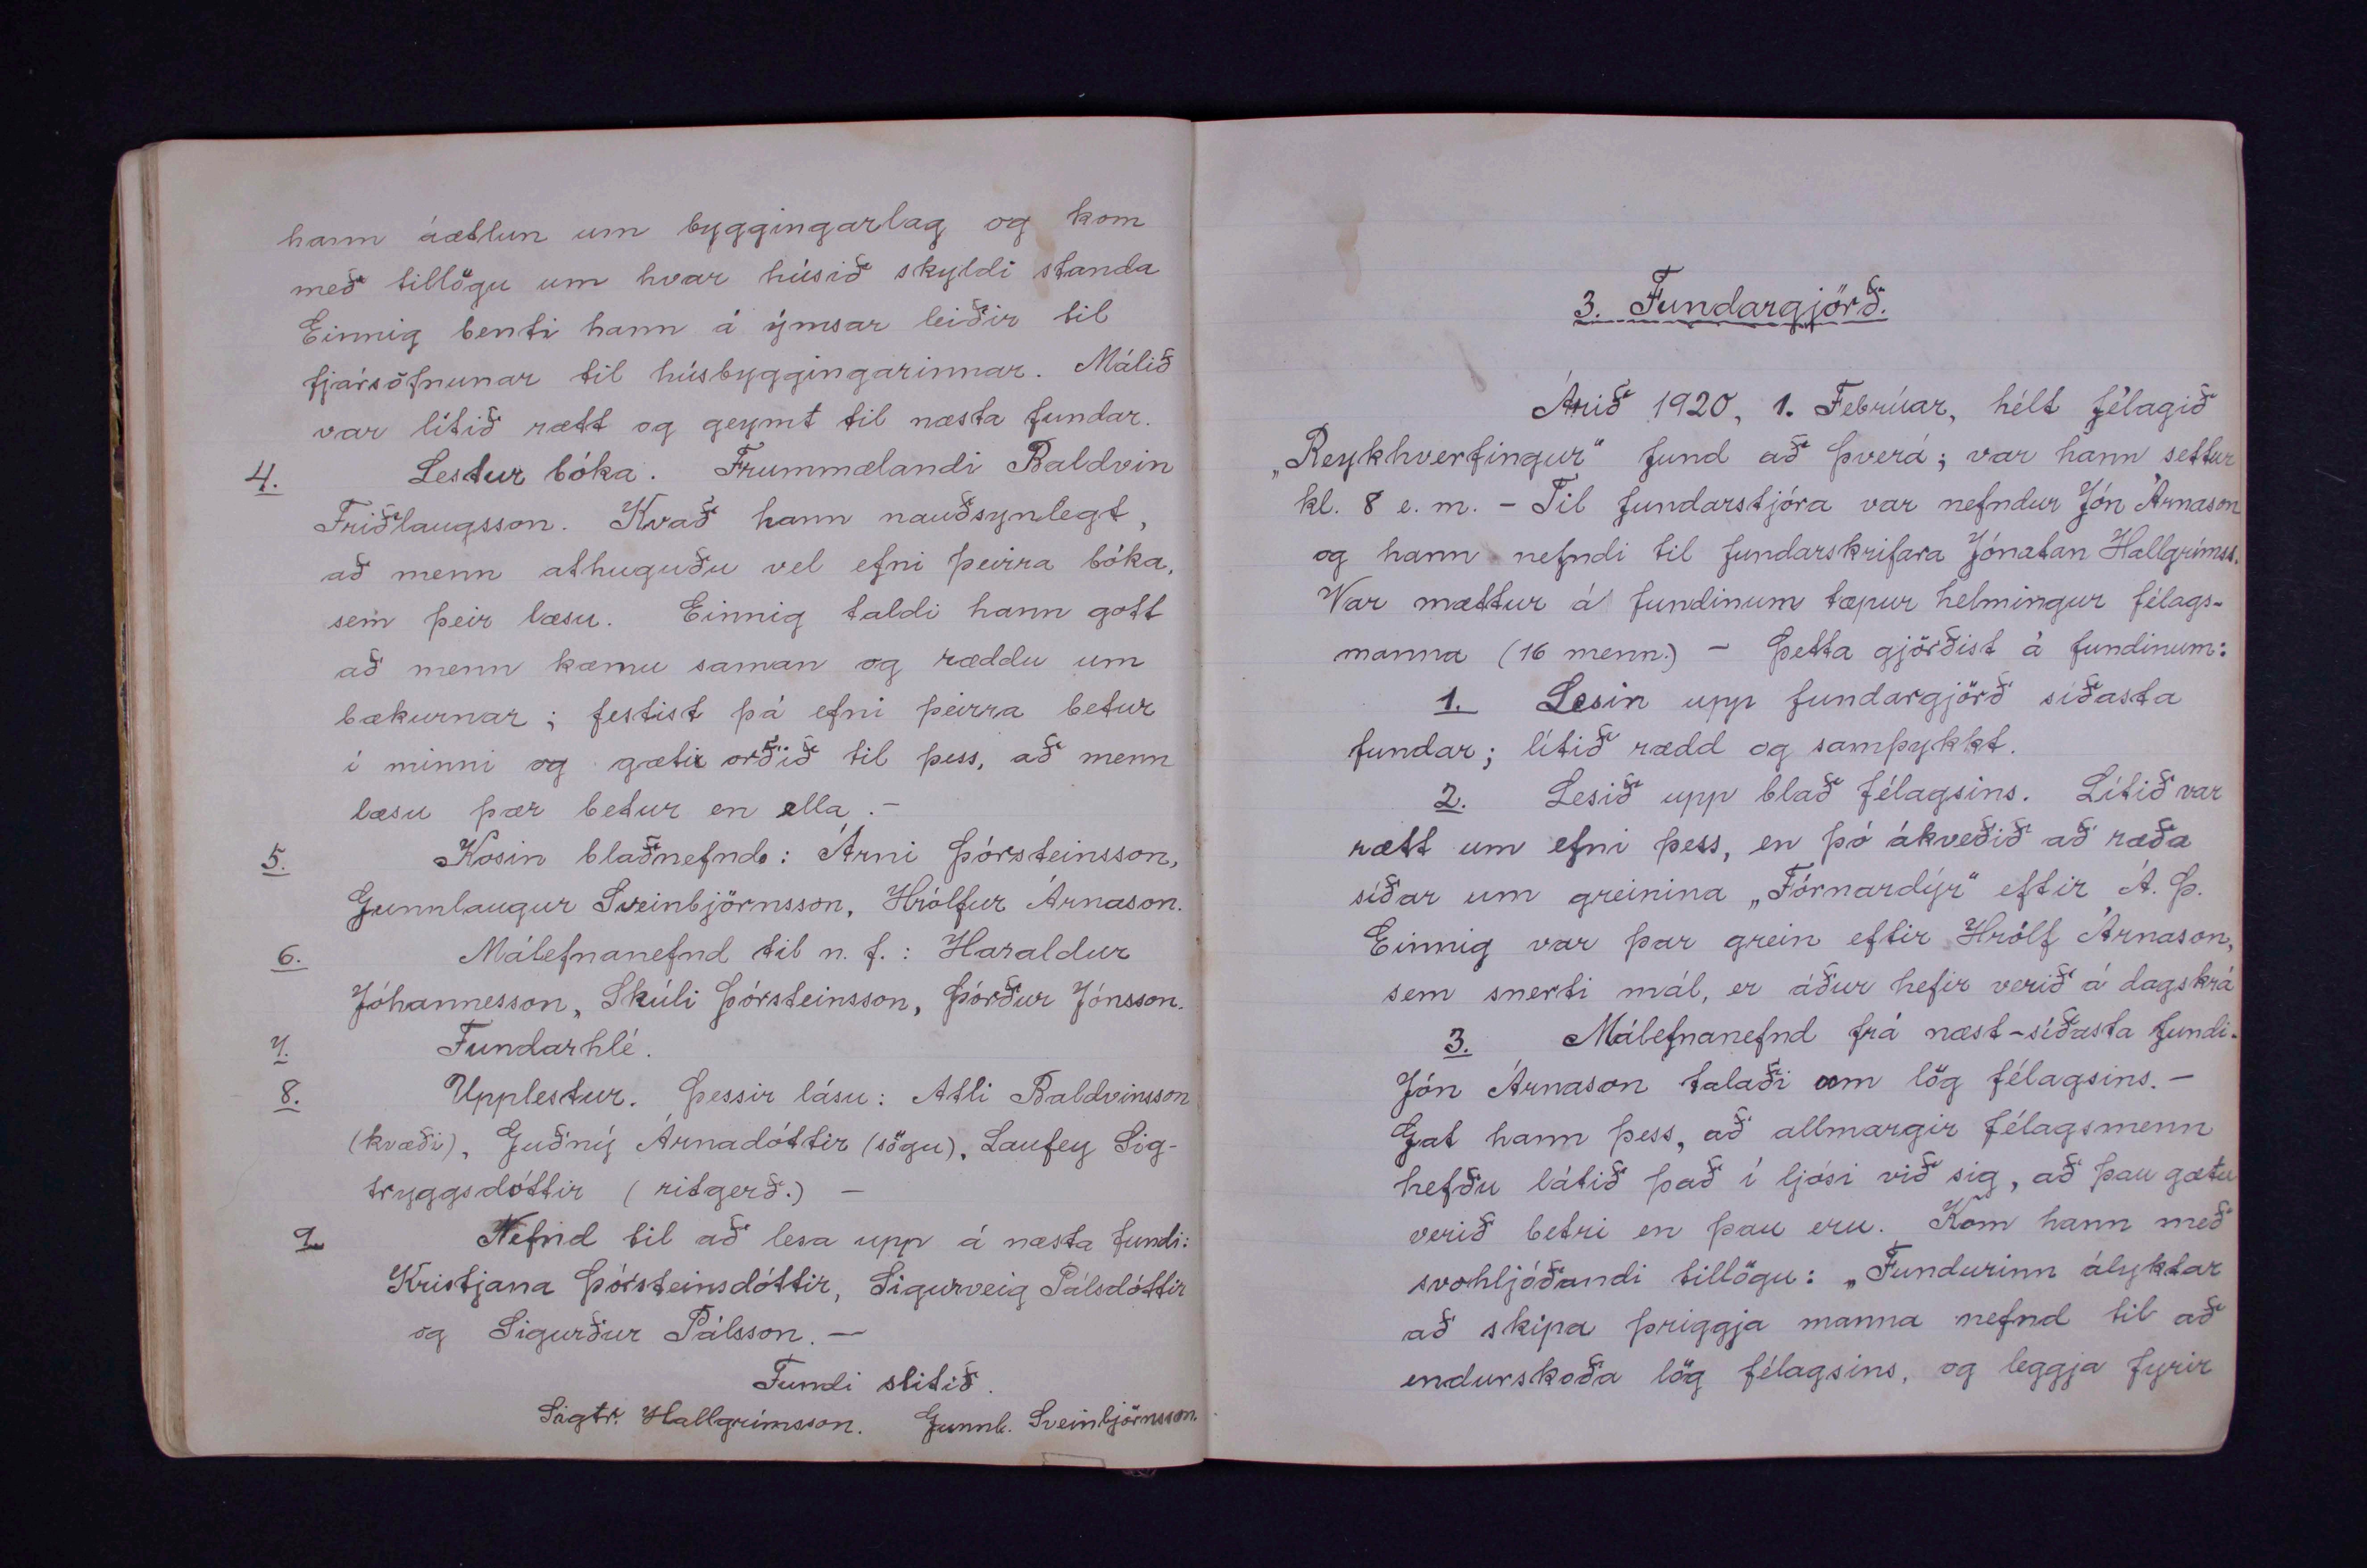 hann áætlun um byggingarlag og kom
með tillögu um hvar húsið skyldi standa
Einnig benti hann á ýmsar leiðir til
fjársöfnunar til húsbyggingarinnar. Málið
var lítið rætt og geymt til næsta fundar.
4. Lestur bóka. Frummælandi Baldvin
Friðlaugsson. Kvað hann nauðsynlegt,
að menn athuguðu vel efni þeirra bóka,
sem þeir læsu. Einnig taldi hann gott
að menn kæmu saman og ræddu um
bækurnar; festist þá efni þeirra betur
í minni og gæti orðið til þess, að menn
læsu þær betur en ella. –
5. Kosin blaðnefnd: Árni Þórsteinsson,
Gunnlaugur Sveinbjörnsson, Hrólfur Árnason.
6. Málefnanefnd til n. f.: Haraldur
Jóhannesson, Skúli Þórsteinsson, Þórður Jónsson.
7. Fundarhlé.
8. Upplestur. Þessir lásu: Atli Baldvinsson
(kvæði), Guðný Árnadóttir (sögu), Laufey Sig-
tryggsdóttir (ritgerð.) –
9. Nefnd til að lesa upp á næsta fundi:
Kristjana Þórsteinsdóttir, Sigurveig Pálsdóttir
og Sigurður Pálsson. –
Fundi slitið.
Sigtr. Hallgrímsson. Gunnl. Sveinbjörnsson.
3. Fundargjörð.
Árið 1920, 1. Febrúar, hélt félagið
„Reykhverfingur“ fund að Þverá; var hann settur
kl. 8 e. m. – Til fundarstjóra var nefndur Jón Árnason
og hann nefndi til fundarskrifara Jónatan Hallgrímss.
Var mættur á fundinum tæpur helmingur félags-
manna (16 menn.) – Þetta gjörðist á fundinum:
1. Lesin upp fundargjörð síðasta
fundar; lítið rædd og samþykkt.
2. Lesið upp blað félagsins. Lítið var
rætt um efni þess, en þó ákveðið að ræða
síðar um greinina „Fórnardýr“ eftir Á. Þ.
Einnig var þar grein eftir Hrólf Árnason,
sem snerti mál, er áður hefir verið á dagskrá
3. Málefnanefnd frá næst-síðasta fundi.
Jón Árnason talaði um lög félagsins. –
Gat hann þess, að allmargir félagsmenn
hefðu látið það í ljósi við sig, að þau gætu
verið betri en þau eru. Kom hann með
svohljóðandi tillögu: „Fundurinn ályktar
að skipa þriggja manna nefnd til að
endurskoða lög félagsins, og leggja fyrir